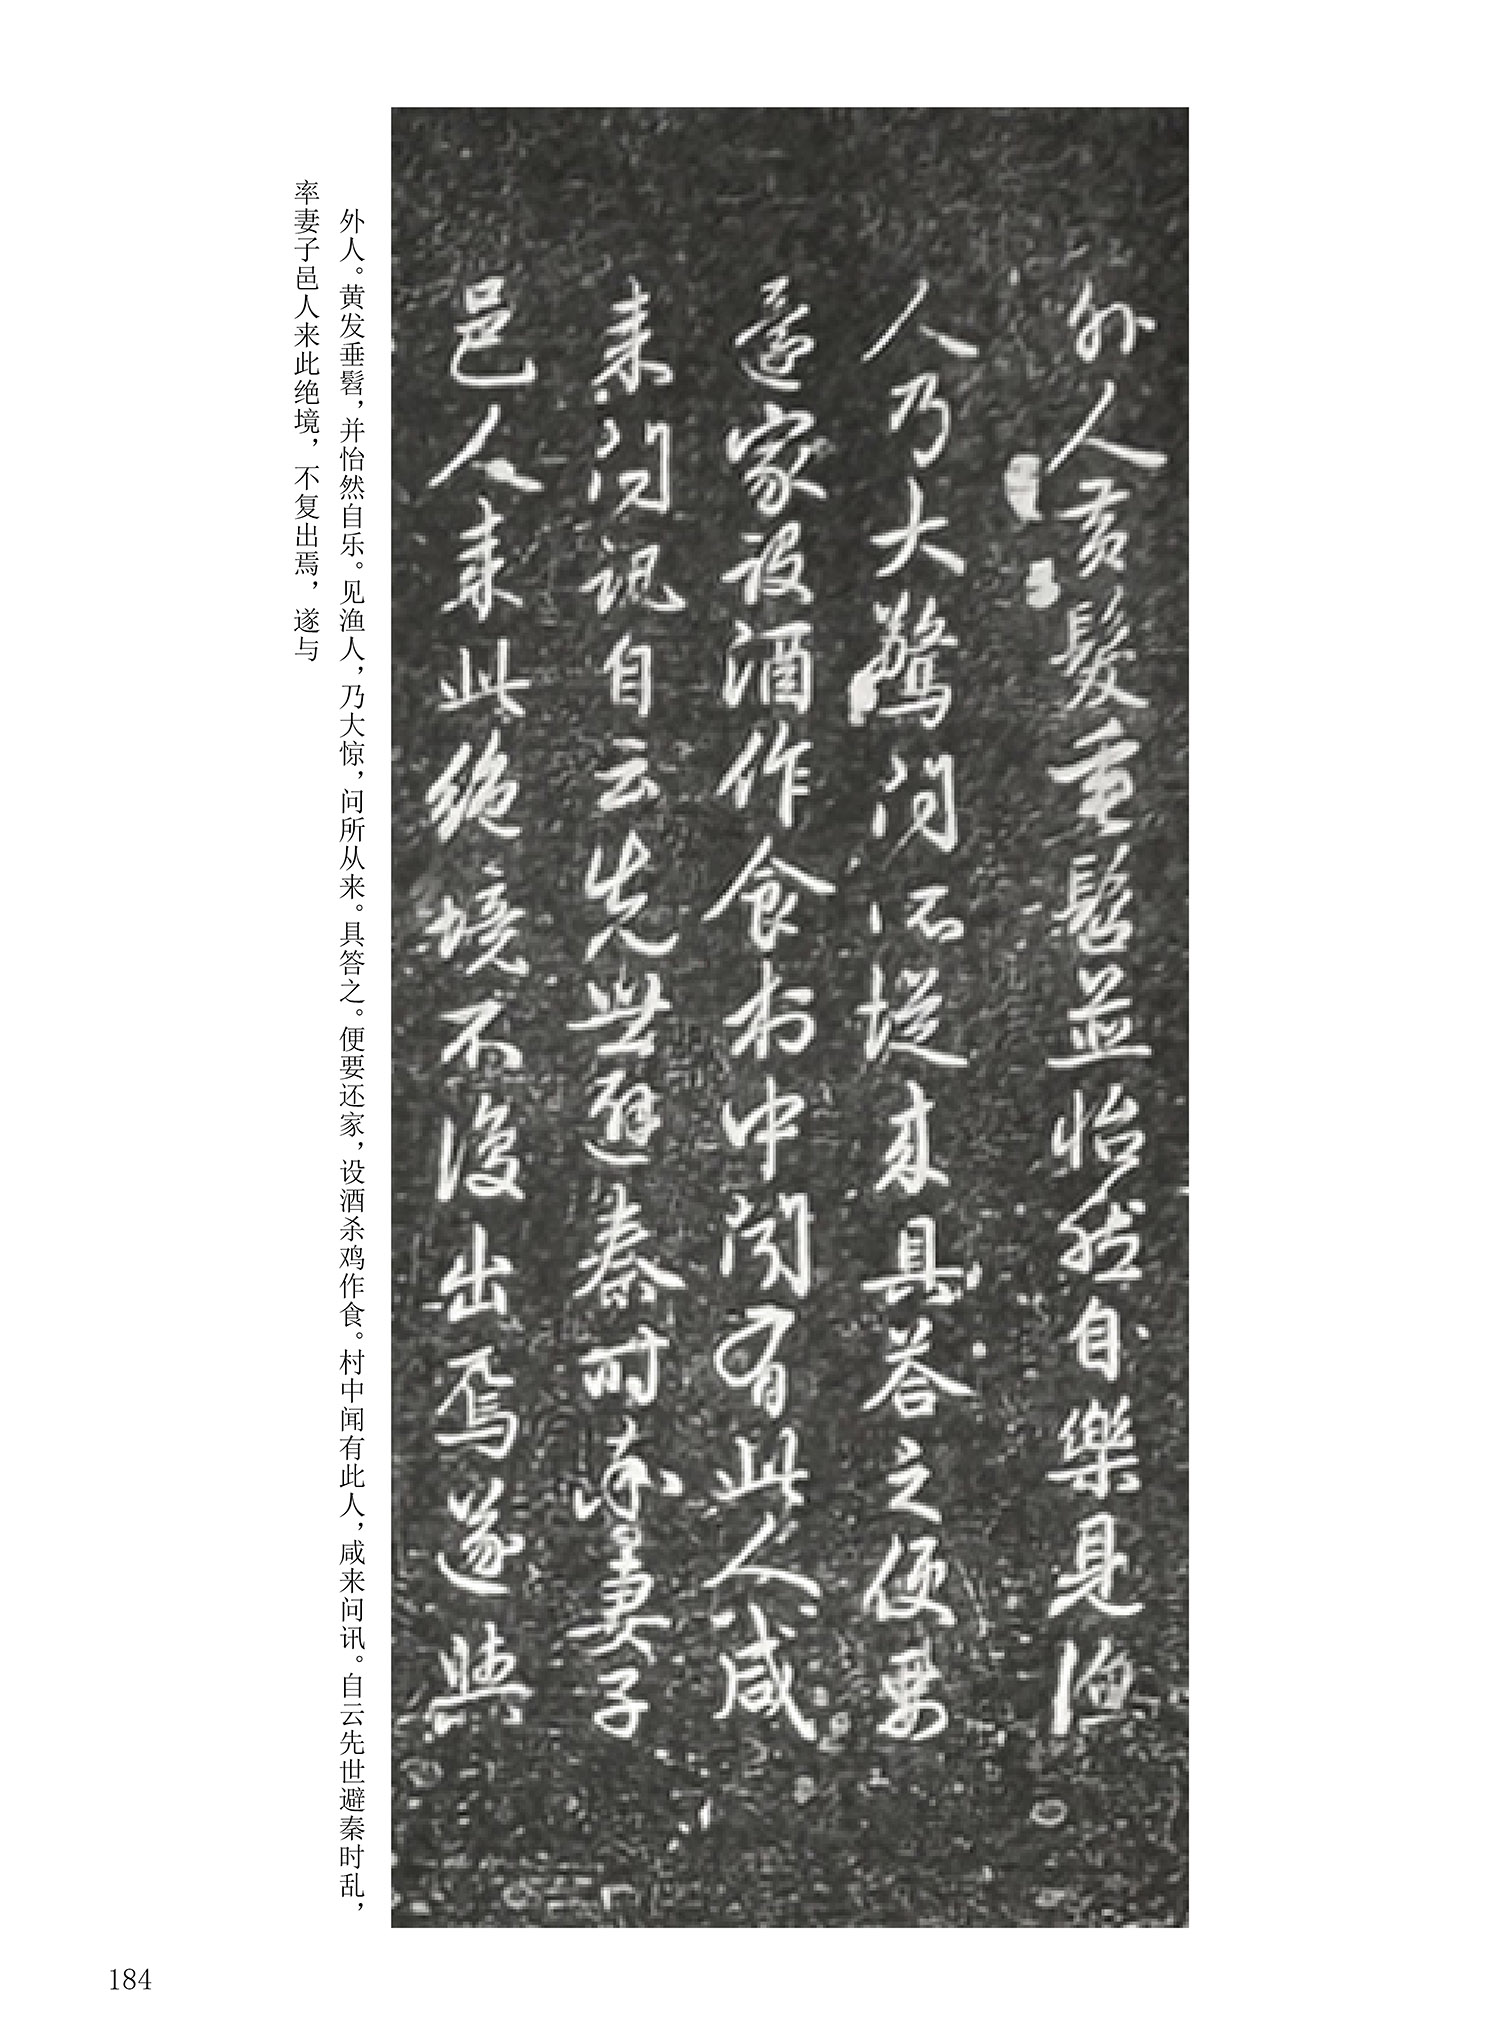 外人黃髮垂髫並怡然自樂見漁
人乃大驚問所從来具答之便要
還家設酒作食村中聞有此人咸
来問訊自云先世避秦時率妻子
邑人来此絶境不復出焉遂與
外人。黄发垂髫，并怡然自乐。见渔人，乃大惊，问所从来。具答之。便要还家，设酒杀鸡作食。村中闻有此人，咸来问讯。自云先世避秦时乱，
率妻子邑人来此绝境，不复出焉，遂与
184